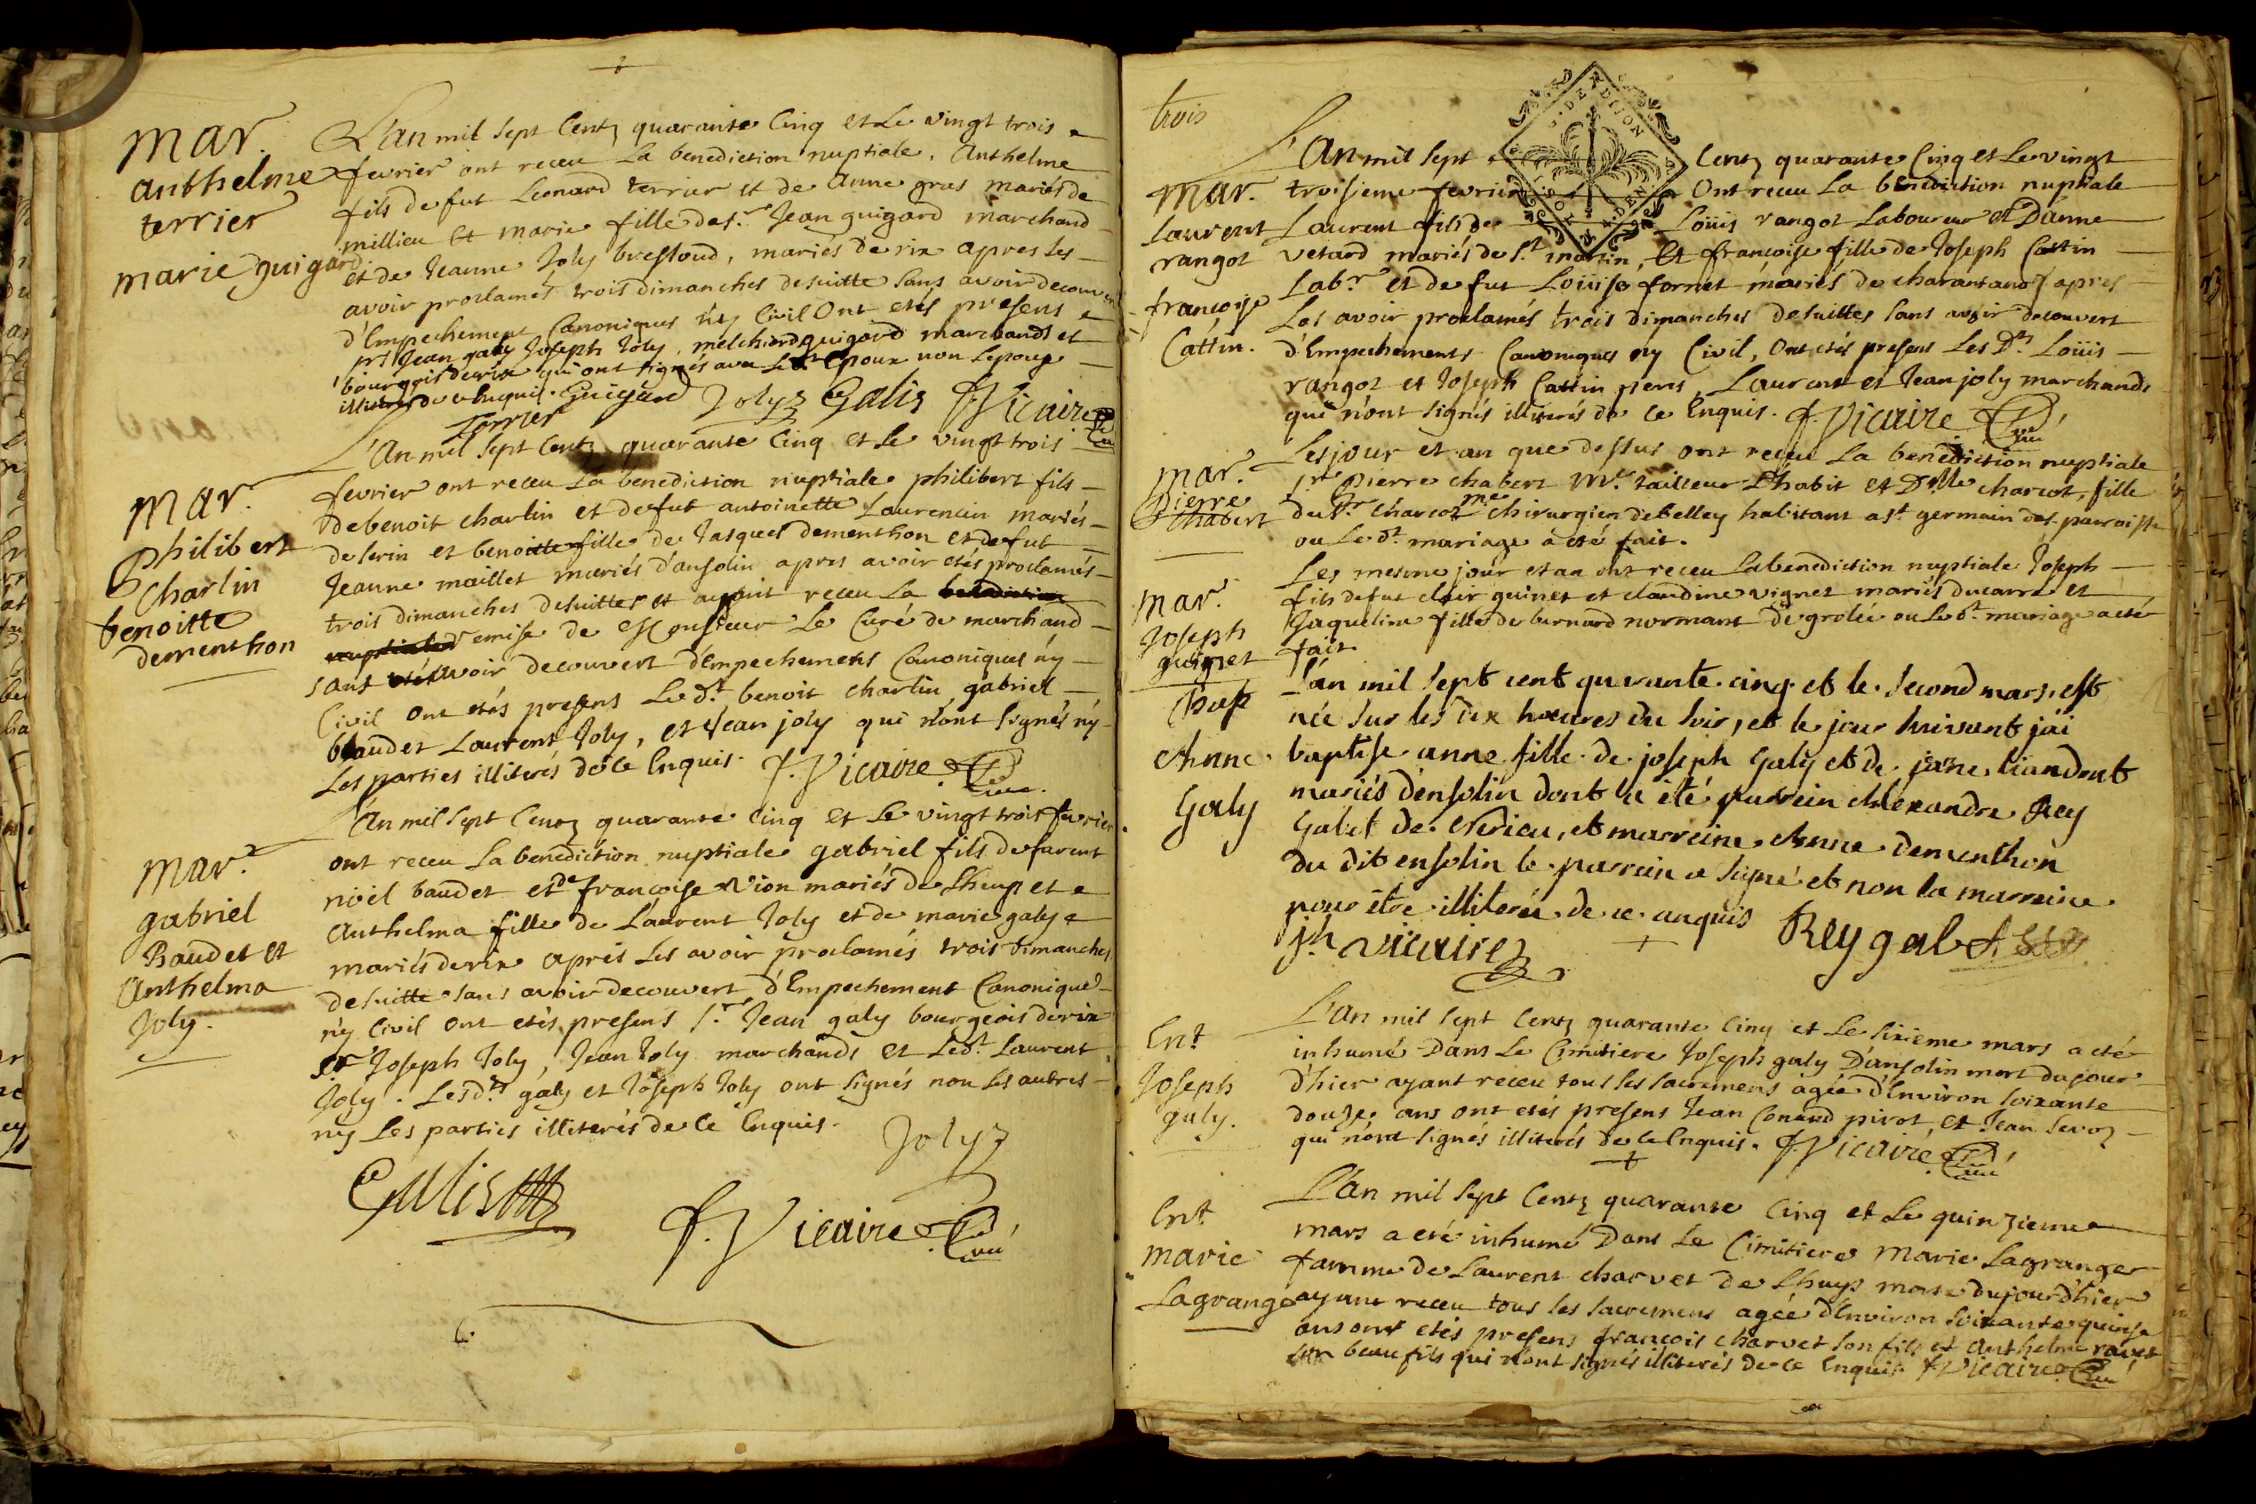 mar.
anthelme
terrier
marie guigard
L'an mil sept Centz quarante Cinq et Le vingt trois
fevrier ont receu La benediction nuptiale, Anthelme
fils de fut Leonard terrier et de Anne gras mariés de
millieu Et marie fille de sr. Jean guigard marchand
et de Jeanne Joly bressoud, mariés de rix apres les
avoir proclamés trois dimanches desuitte sans avoir decouvert
d'Empechement Canoniques ny Civil Ont etés presens
Jean galy Joseph Joly, melchiord guigard marchands et
bourgois de rix qui ont signés avec Led. Epoux non L'epouze
illiterée de ce Enquis. Guigard Joly Galis f. Vicaire Curé
terrier
mar.
philibert
Charlin
benoitte
dementhon
L'An mil sept Centz quarante Cinq et le vingt trois
fevrier ont receu La benediction nuptiale philibert fils
de benoit charlin et de fut antoinette Laurencin mariés
de serin et benoitte fille de Jasques dementhon et de fut
Jeanne maillet mariés d'ansolin apres avoir etés proclamés
trois dimanches desuittes et ayant receu La benediction
nuptiale remise de Monsieur Le Curé de marchand
sans avoir decouvert d'Empechements Canoniques ny
Civil ont etés presens Led.t benoit charlin, gabriel
baudet Laurent Joly, et Jean joly qui n'ont signés ny
Les parties illiterés de ce Enquis. f. Vicaire Curé
mar.
gabriel
Baudet et
Anthelma
Joly.
L'An mil sept Centz quarante Cinq et Le vingt trois fevrier
ont receu La benediction nuptiale gabriel fils de
noël baudet et de françoise Vion mariés de Lhuys et
Anthelma fille de Laurent Joly et de marie galy
mariés de rix aprés les avoir proclamés trois dimanches
desuitte sans avoir decouvert d'Empechement Canonique
ny Civil ont etés presens sr. Jean galy bourgeois de rix
Joseph Joly, Jean Joly marchands et Led.t Laurent
Joly. Lesd.ts galy et Joseph Joly ont signés non Les autres
ny Les parties illiterés de Ce Enquis.
Joly
Galis
f. Vicaire Curé
trois
G. DE DIJON
mar.
Laurent
rangot
françoise
Cattin.
L'An mil sept Centz quarante Cinq et Le vingt
troisieme fevrier Ont receu La benediction nuptiale
Laurent fils de Loüis rangot Laboureur et D'anne
vetard mariés de St. martin, Et françoise fille de Joseph Cattin
Labr. et de fut Loüise fornet mariés de charantanof apres
Les avoir proclamés trois dimanches desuittes sans avoir decouvert
d'Empechements Canoniques ny Civil, Ont etés presens Les D.ts Loüis
rangot et Joseph Cattin peres, Laurent et Jean joly marchands
qui n'ont signés illiterés de Ce Enquis. f. Vicaire Curé
mar.
pierre
Chabert
Les jour et an que dessus ont receu La benediction nuptiale
sr. Pierre chabert mr. tailleur D'habit et Dlle charcot, fille
du Sr. charcot me chirurgien de belley habitant a St. germain des paroisse
ou Led.t mariage a été fait.
mar.
Joseph
guinet
Les mesme jour et an ont receu La benediction nuptiale Joseph
fils de fut clair guinet et claudine vignet mariés et
Jaqueline fille de bernard normant de grolée ou Led.t mariage a été
fait.
Bap
Anne
Galy
L'an mil sept cent quarante cinq et le second mars est
née sur les dix heures du soir, et le jour suivant jai
baptise anne fille de joseph galy et de jane
mariés d'ensolin dont a été parrein Alexandre Rey
Gabet de Verieu, et marreine Anne dementhon
du dit ensolin le parrein a signé et non la marreine
pour être illiterée de ce anquis
jh. vicaire Rey gabet
Ent
Joseph
galy.
L'an mil sept Centz quarante Cinq et Le sixieme mars a eté
inhumé Dans Le Cimitiere Joseph galy D'ansolin mort du jour
d'hier ayant receu tous les sacremens agée d'Environ soixante
douze ans ont etés presens Jean Conard pirot, et Jean sevoz
qui n'ont signés illiterés de Ce Enquis. f. Vicaire Curé
Ent
marie
Lagrange
L'an mil sept Centz quarante Cinq et Le quinzieme
mars a eté inhumé Dans Le Cimitiere Marie Lagrange
famme de Laurent charvet de Lhuys morte du jourd'hier
ayant receu tous les sacremens agée d'Environ soixante quinse
ans ont etés presens françois charvet son fils et Anthelme ravet
son beau fils qui n'ont signés illiterés de ce Enquis f. Vicaire Curé